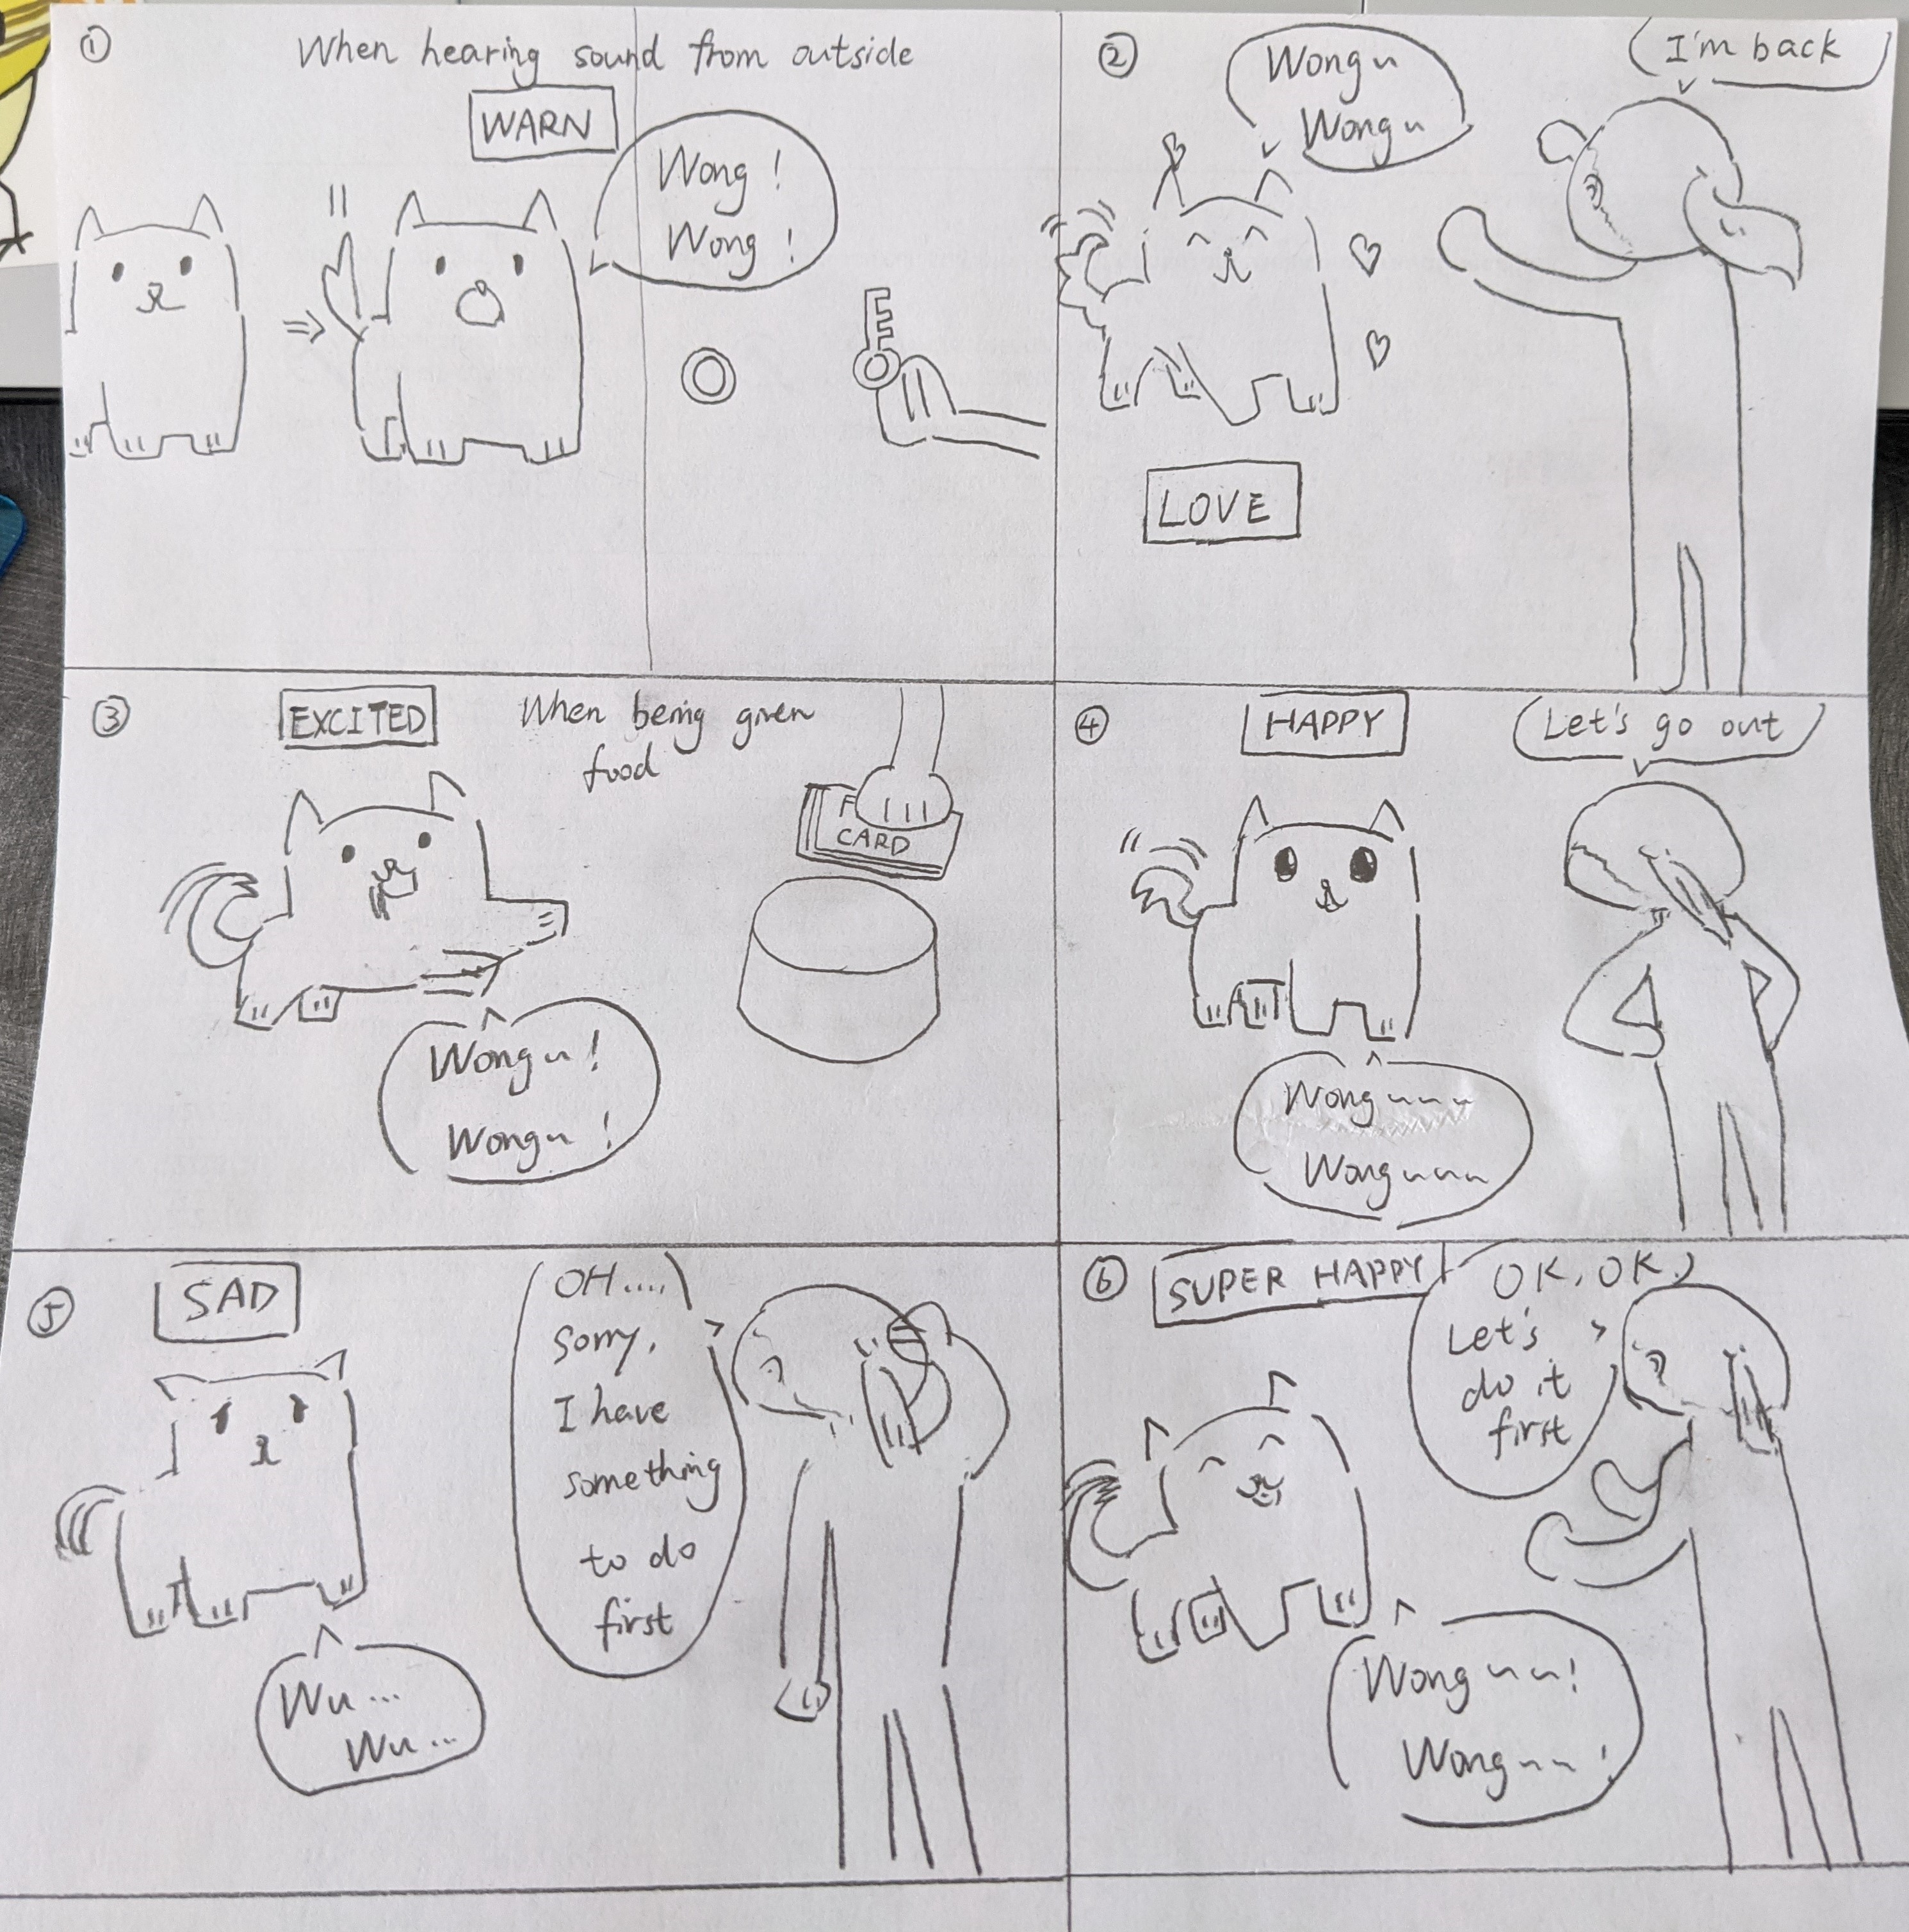 ①
When hearing sound from outside
WARN
Wong!
Wong!
②
Wong~
Wong~
I'm back
LOVE
③
EXCITED
When being given
food
F
CARD
Wong~!
Wong~!
④
HAPPY
Let's go out
Wong~~~
Wong~~~
⑤
SAD
OH....
sorry,
I have
something
to do
first
Wu...
Wu...
⑥
SUPER HAPPY
OK, OK,
Let's
do it
first
Wong~~!
Wong~~!